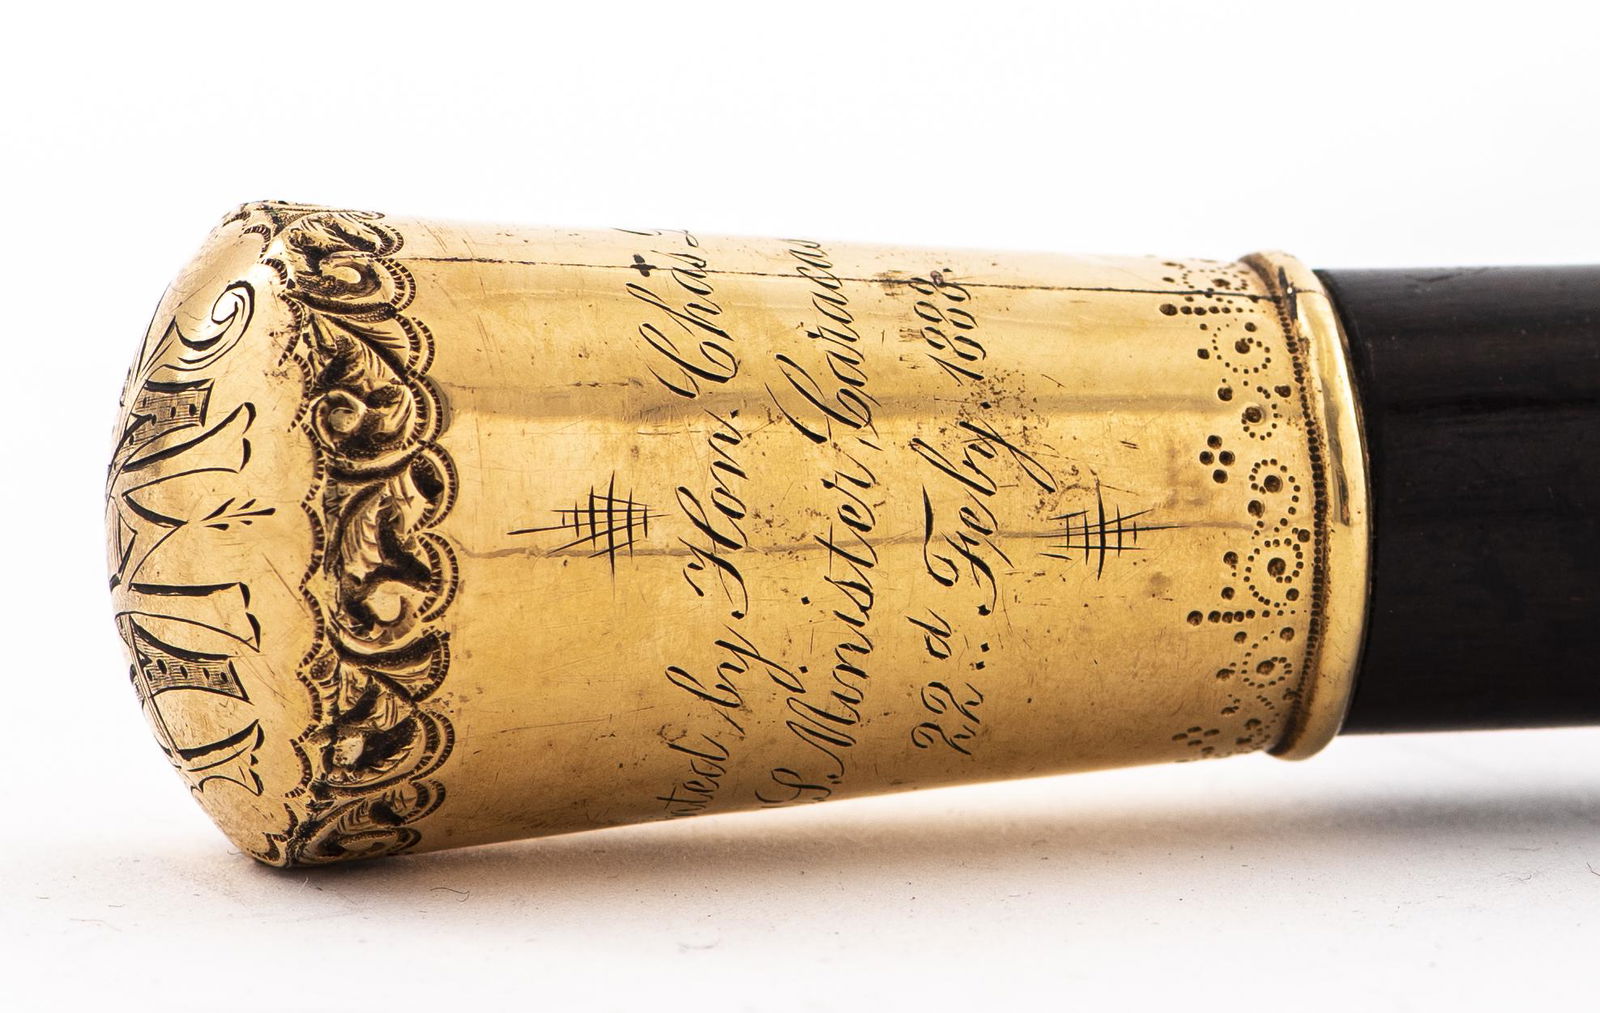 nted by Hon. Chas
S. Minister Caracas
22d Feby. 1888.